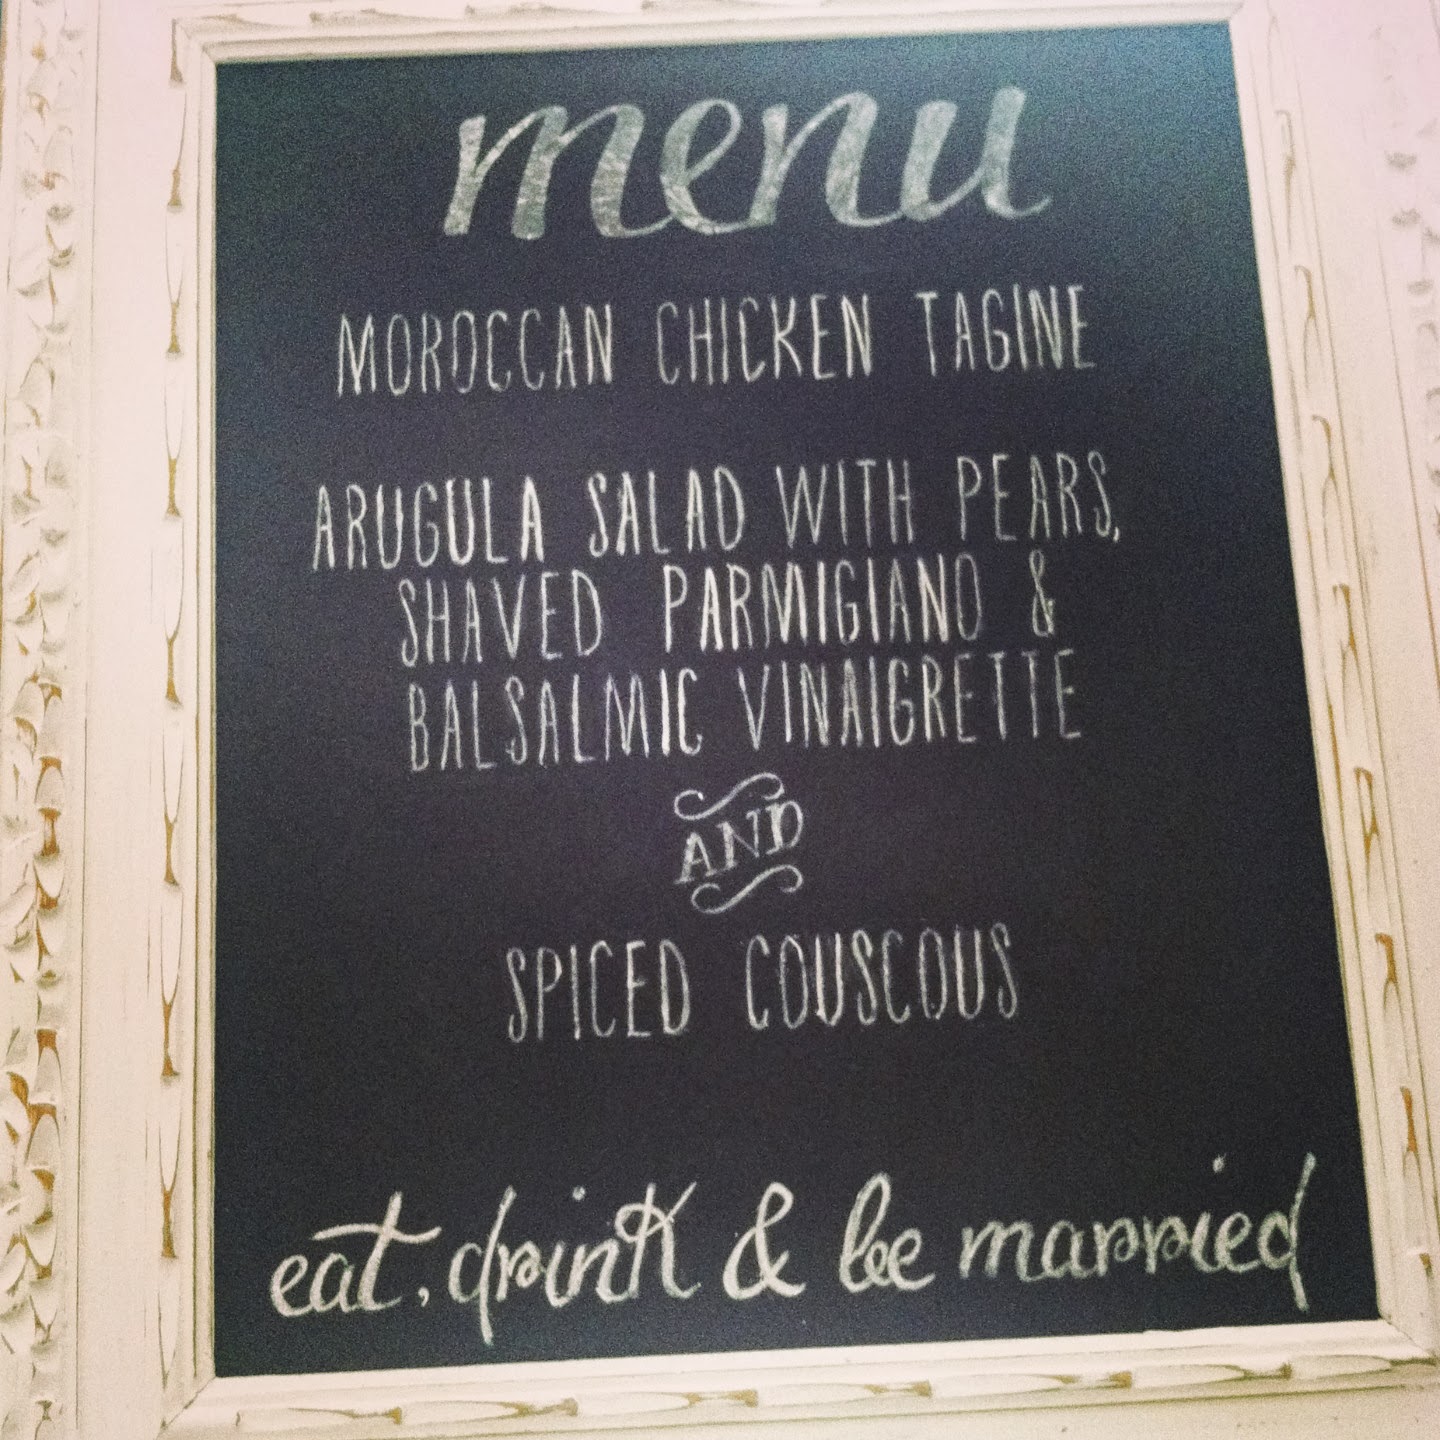 menu
MOROCCAN CHICKEN TAGINE
ARUGULA SALAD WITH PEARS,
SHAVED PARMIGIANO &
BALSALMIC VINAIGRETTE
AND
SPICED COUSCOUS
eat, drink & be married